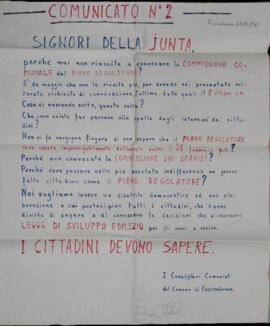 COMUNICATO N° 2
SIGNORI DELLA JUNTA,
perché mai non riuscite a convocare la COMMISSIONE CO-
MUNALE del PIANO REGOLATORE?
È da maggio che non la riunite più, pur avendo noi presentato
richiesta di convocazione, l'ultima delle quali il 5 ottobre
Cosa si nasconde sotto, questa volta?
Che cosa volete far passare alle spalle degli interessi dei citta-
dini?
Non vi fa vergogna fingere di non sapere che il PIANO REGOLATORE
deve essere improrogabilmente deliberato entro il 28 febbraio
Perché non convocate la COMMISSIONE SUI SERVIZI?
Perché deve passare nella più assoluta indifferenza un grosso
fatto cittadino come il PIANO REGOLATORE?
Noi vogliamo invece un dibattito democratico ed una ela-
borazione a cui partecipino tutti i cittadini, che hanno
diritto di sapere e di conoscere le decisioni che diverranno
LEGGE DI SVILUPPO EDILIZIO per gli anni a venire.
I CITTADINI DEVONO SAPERE.
I Consiglieri Comunisti
del Comune di Fossombrone